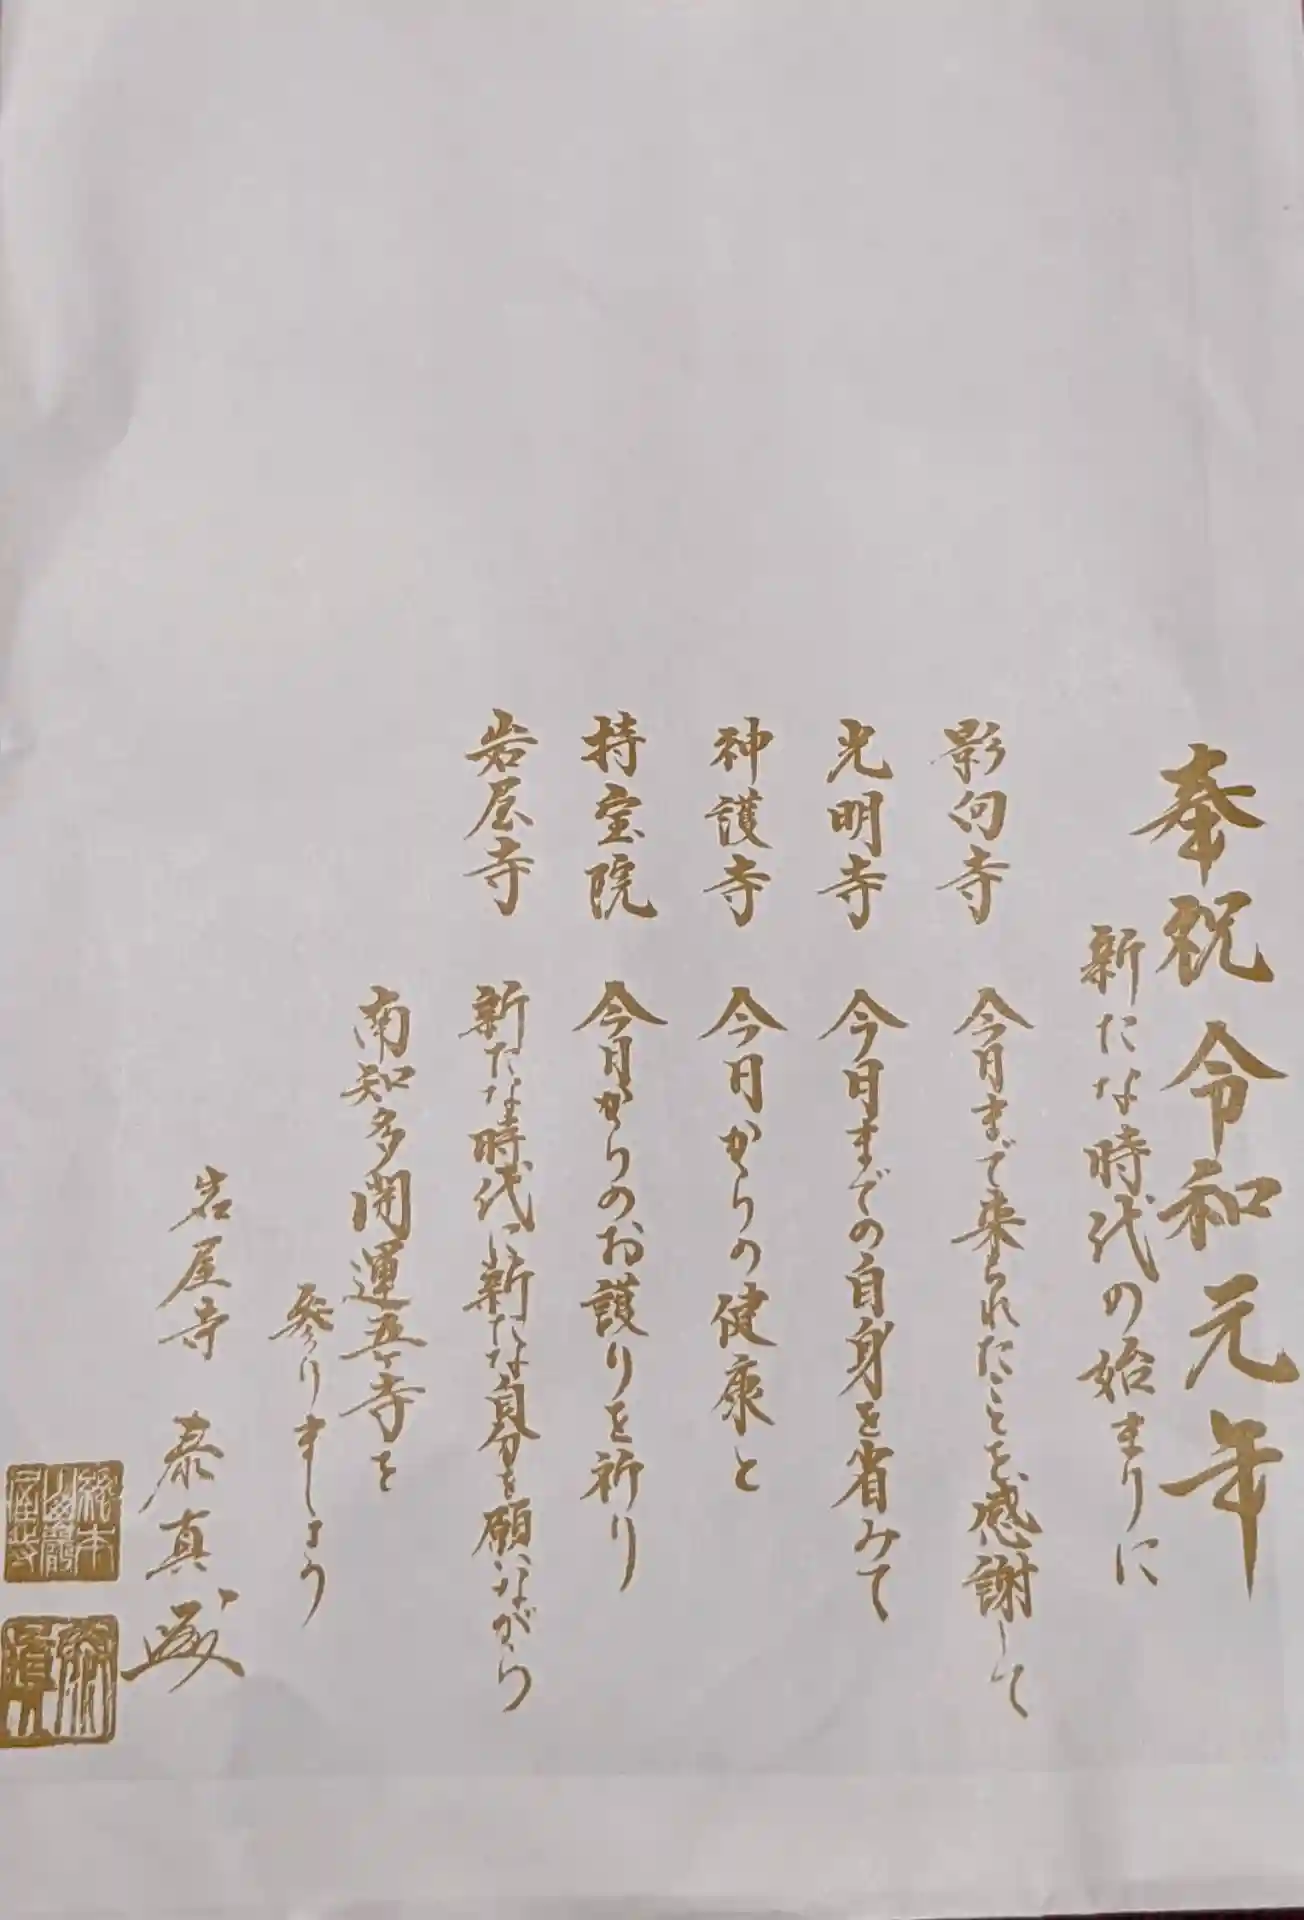 奉祝令和元年
新たな時代の始まりに
影向寺 今日まで来られたことを感謝して
光明寺 今日までの自身を省みて
神護寺 今日からの健康と
持宝院 今日からのお護りを祈り
岩屋寺 新たな時代に新たな自分を願いながら
南知多開運五ヶ寺を
参りましょう
岩屋寺 泰真